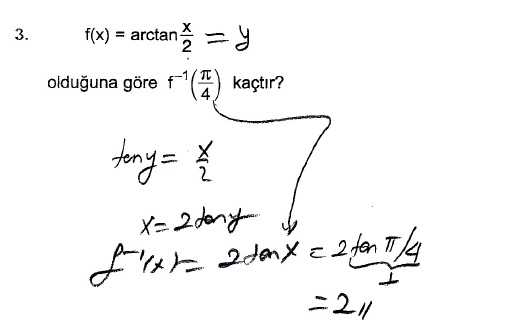 3. f(x) = arctan x/2 = y
olduğuna göre f⁻¹(π/4) kaçtır?
tany = x/2
x = 2tany
f⁻¹(x) = 2tanx = 2tan π/4
1
= 2//